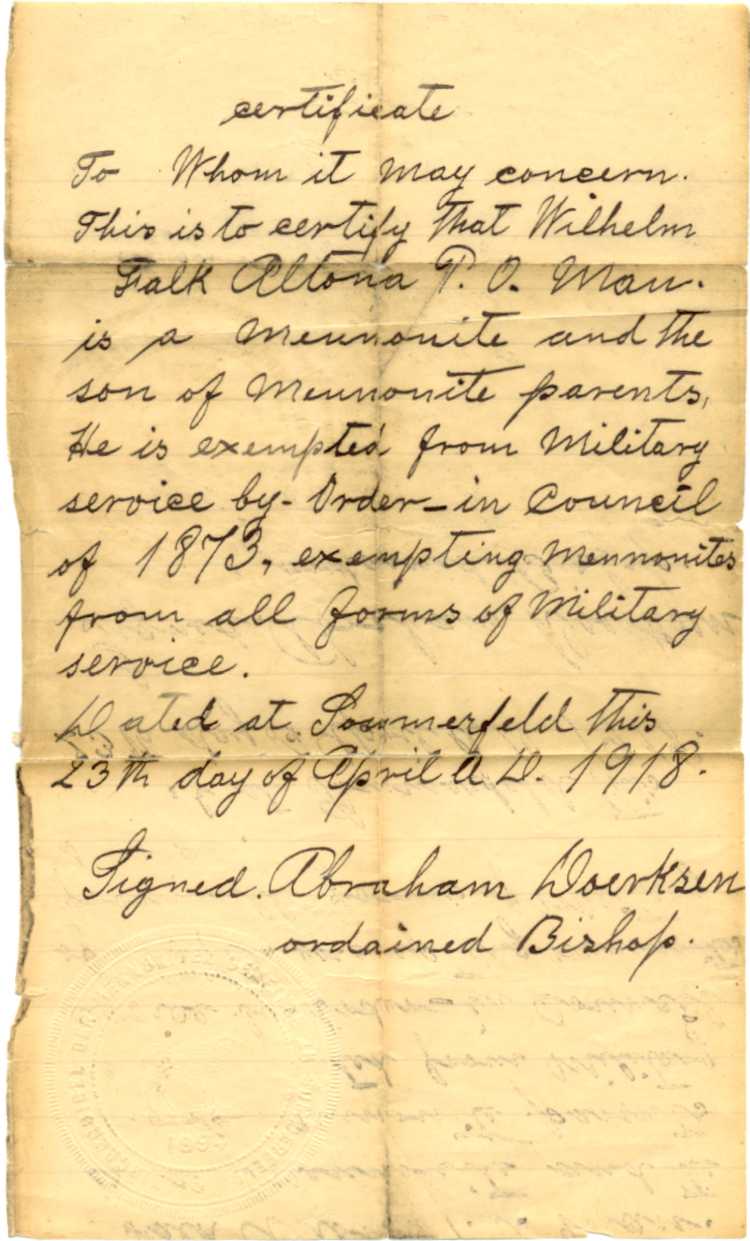 certificate
To Whom it may concern.
This is to certify that Wilhelm
Falk Altona P. O. Man.
is a Mennonite and the
son of Mennonite parents,
He is exempted from Military
service by-Order-in Council
of 1873, exempting Mennonites
from all forms of Military
service.
Dated at Sommerfeld this
23th day of April A D. 1918.
Signed. Abraham Doerksen
ordained Bishop.